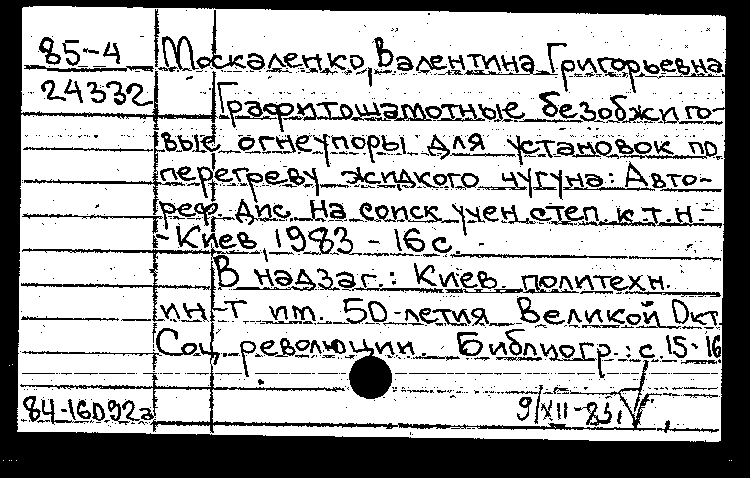 85-4 Москаленко, Валентина Григорьевна
24332 Графитошамотные безобжиго-
вые огнеупоры для установок по
перегреву жидкого чугуна: Авто-
реф. дис. на соиск учен. степ. к.т.н.-
- Киев, 1983 - 16 с.
В надзаг.: Киев. политехн.
ин-т им. 50-летия Великой Окт.
Соц. революции. Библиогр.: с. 15-16
84-16092а 9/XII-83